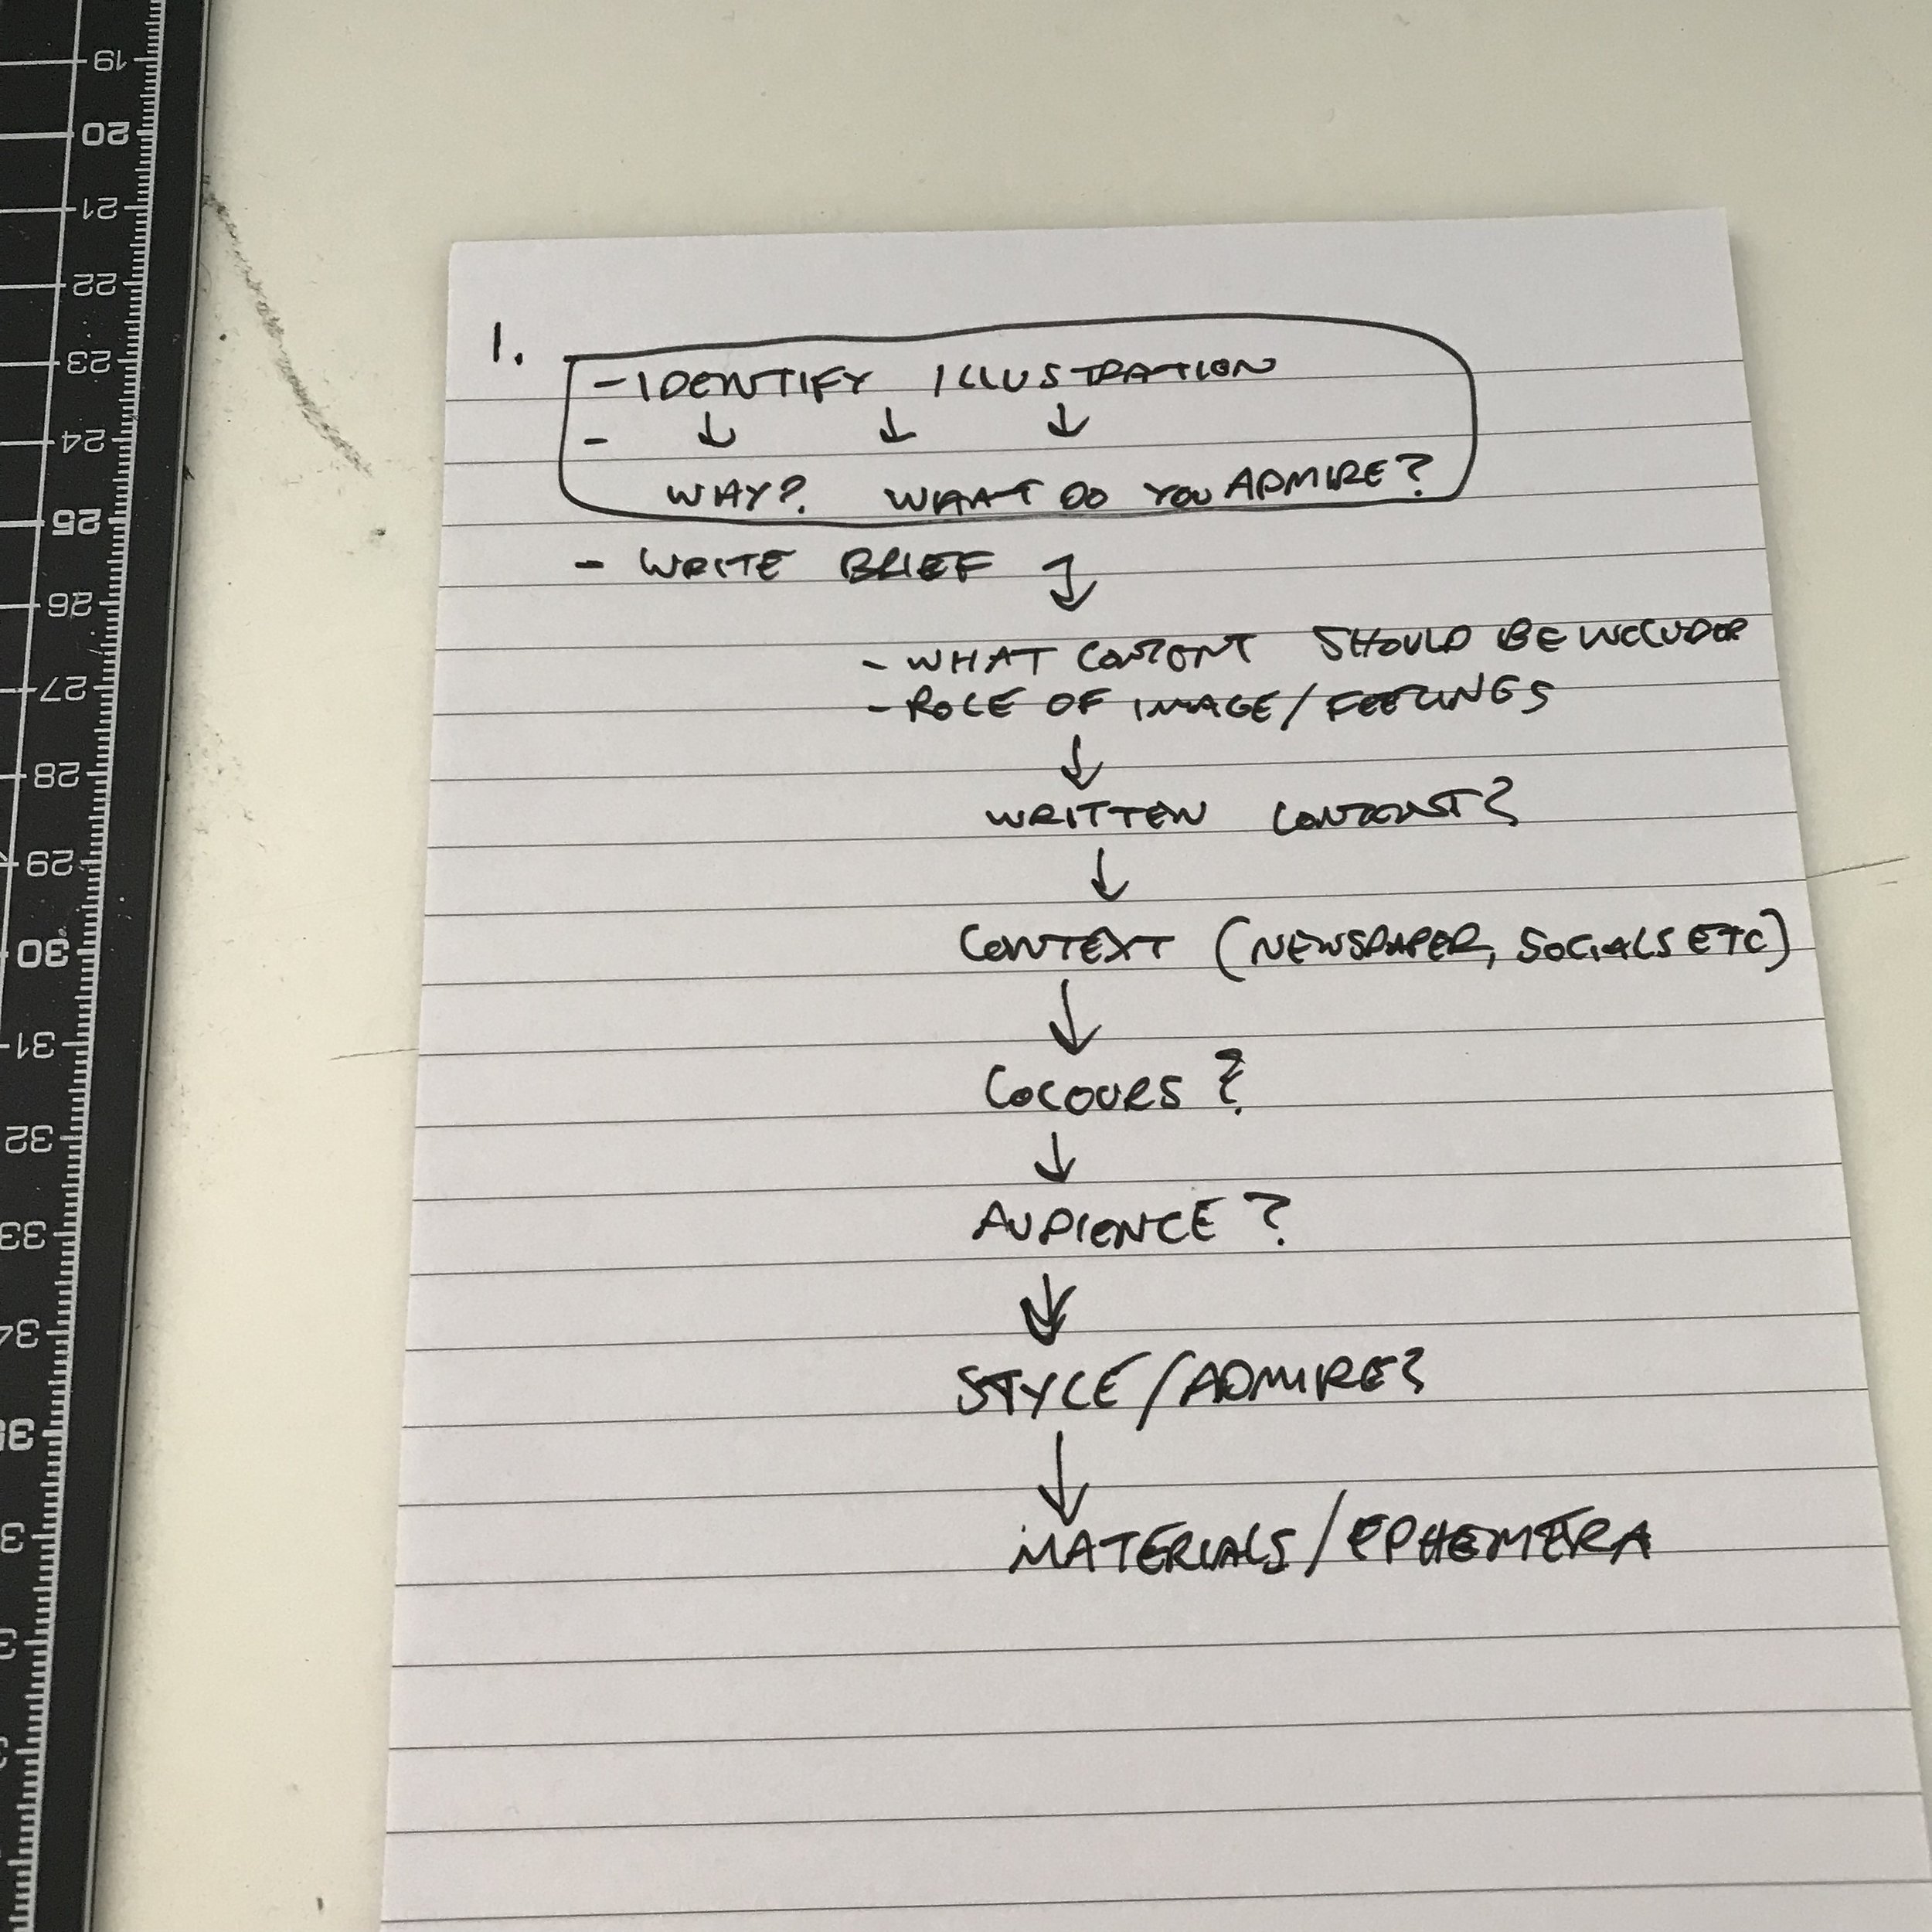 19
20
21
22
23
24
25
26
27
28
29
30
31
32
33
34
1.
- IDENTIFY ILLUSTRATION
- ↓ ↓ ↓
WHY? WHAT DO YOU ADMIRE?
- WRITE BRIEF ↴
- WHAT CONTENT SHOULD BE INCLUDED
- ROLE OF IMAGE/FEELINGS
↓
WRITTEN CONTENT?
↓
CONTEXT (NEWSPAPER, SOCIALS ETC)
↓
COLOURS ?
↓
AUDIENCE ?
↓
STYLE/ADMIRE?
↓
MATERIALS/EPHEMERA